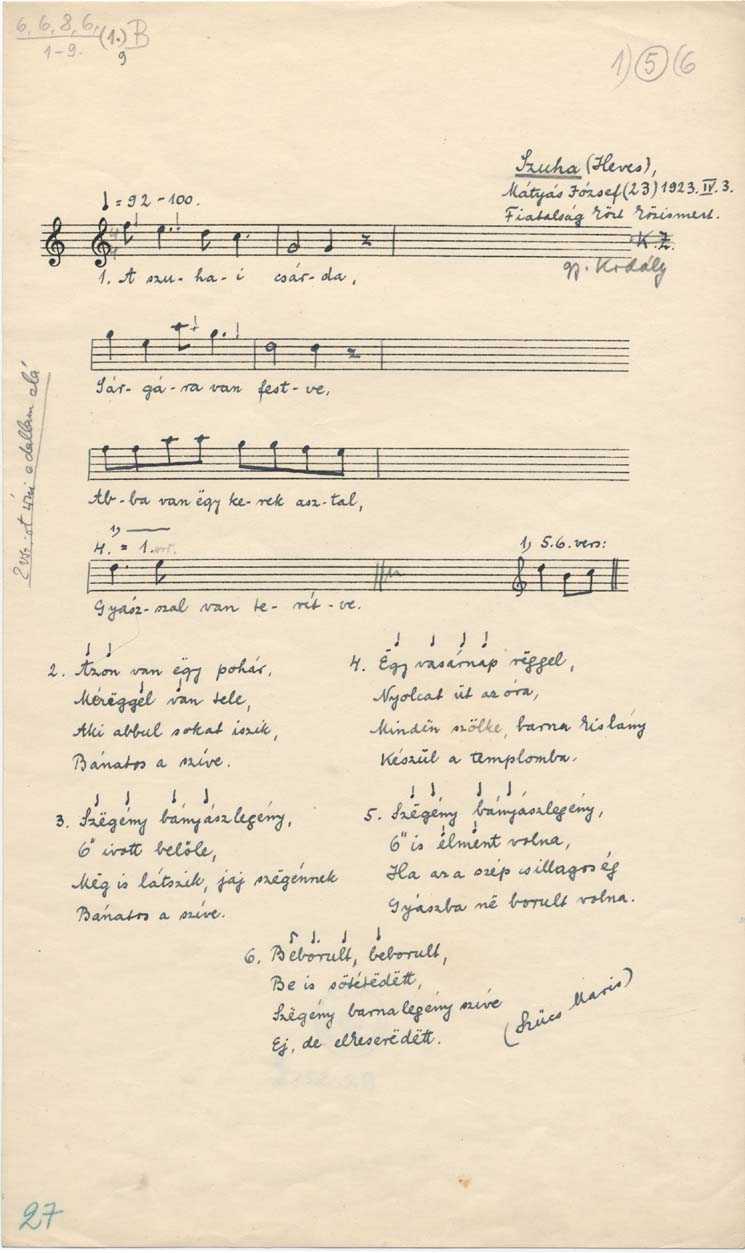 6, 6, 8, 6, (1.) B
1-9. 9
1) 5 (6
Szuha (Heves),
Mátyás József (23) 1923. IV. 3.
Fiatalság közt közismert.
♩ = 92-100.
K. Z.
gy. Kodály
1. A szu-ha-i csár-da,
Sár-gá-ra van fest-ve,
Ab-ba van ëgy ke-rek asz-tal,
1)
4. = 1. sor.
1) 5.6. vers:
Gyász-szal van te-rít-ve.
2. Azon van ëgy pohár,
Méréggél van tele,
Aki abbul sokat iszik,
Bánatos a szíve.
3. Szëgény bányászlegény,
Ő ivott belőle,
Még is látszik, jaj szëgénnek
Bánatos a szíve.
4. Ëgy vasárnap rëggel,
Nyolcat üt az óra,
Mindën szőlke, barna kislány
Készül a templomba.
5. Szëgény bányászlegény,
Ő is elmënt volna,
Ha az a szép csillagos ég
Gyászba në borult volna.
6. Béborult, beborult,
Be is sötétëdëtt,
Szëgény barnalegény szíve
Ej, de elkeserëdëtt.
(Szücs Maris)
27